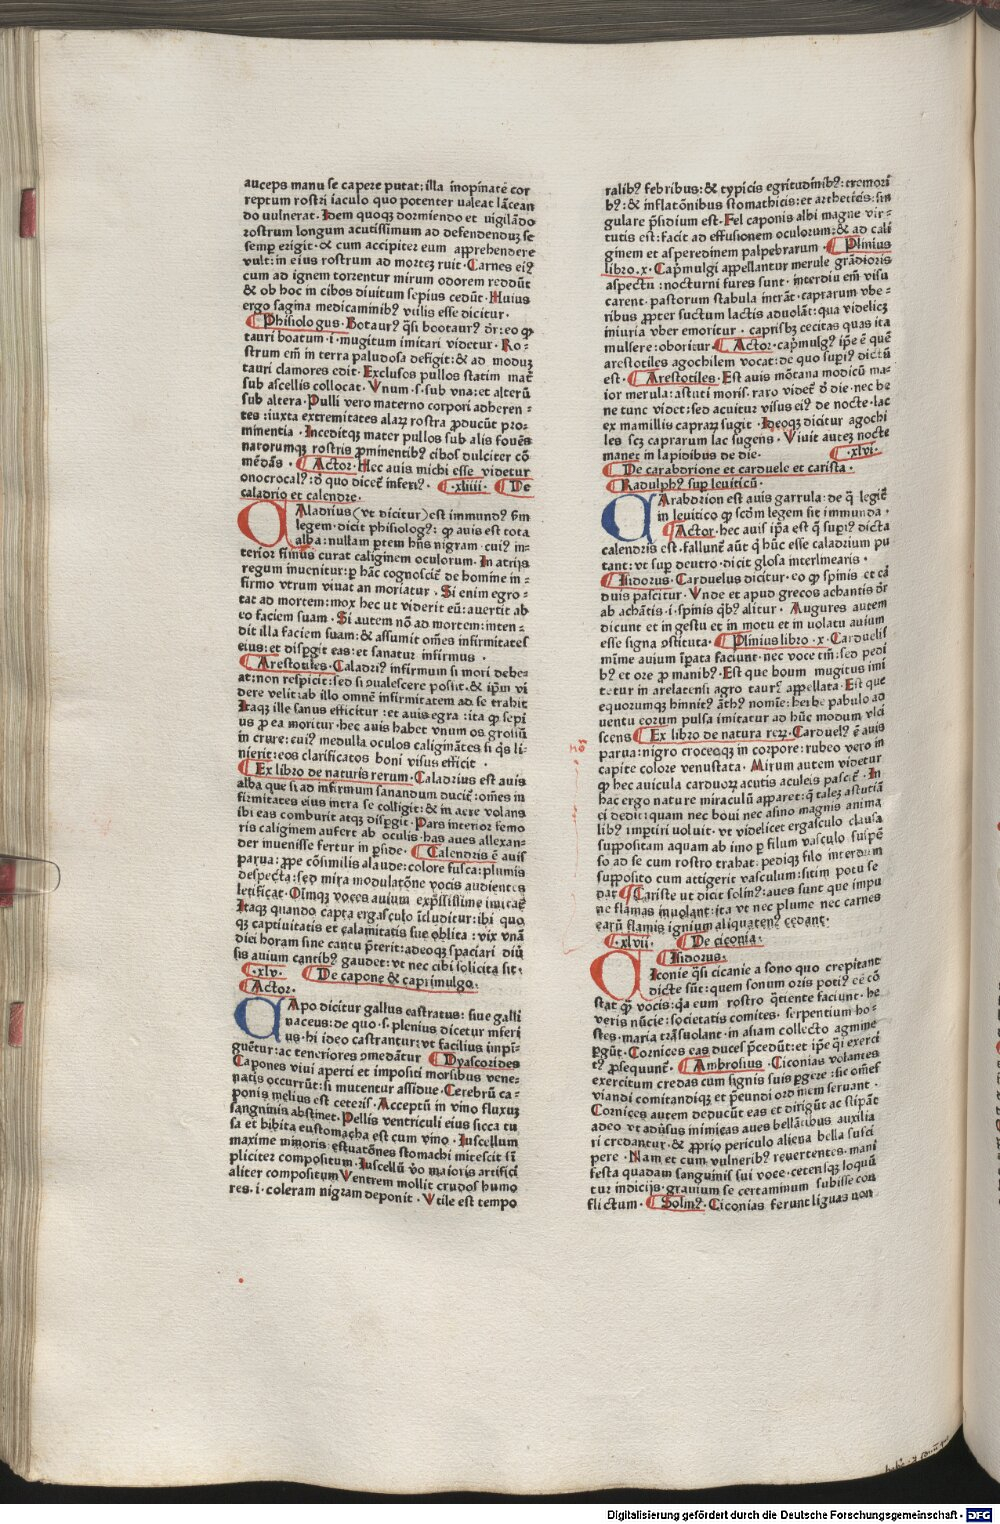 auceps manu se capere putat: illa inopinate cor
reptum rostri iaculo quo potenter ualeat lācean
do uulnerat. Idem quoqꝫ dormiendo et uigilādo
rostrum longum acutissimum ad defendenduꝫ se
semꝑ erigit. & cum accipiter eum apprehendere
vult: in eius rostrum ad morteꝫ ruit. Carnes eiꝰ
cum ad ignem torrentur mirum odorem reddūt
& ob hoc in cibos diuitum sepius cedūt. Huius
ergo sagina medicaminibꝰ vtilis esse dicitur.
Phisiologus. Botaurꝰ q̄si bootaurꝰ dr̄: eo ꝙ
tauri boatum .i. mugitum imitari videtur. Ro-
strum em̄ in terra paludosa defigit: & ad moduꝫ
tauri clamores edit. Exclusos pullos statim mat̄
sub ascellis collocat. Vnum .s. sub vna: et alterū
sub altera. Pulli vero materno corpori adheren-
tes: iuxta extremitates alaꝝ rostra ꝓducūt pro-
minentia. Inceditqꝫ mater pullos sub alis fouēs
natorumqꝫ rostris ꝓminentibꝰ cibos dulciter cō
mēdās. Actor. Hec auis michi esse videtur
onocrocalꝰ: d̄ quo dicet̄ inferiꝰ. .xliiii. De
caladrio et calendre.
CAladrius (vt dicitur) est immundꝰ ẜm
legem. dicit phisiologꝰ: ꝙ auis est tota
alba: nullam ꝑtem hn̄s nigram. cuiꝰ in-
terior fimus curat caliginem oculorum. In atrijs
regum inuenitur: ꝑ hāc cognoscit̄ de homine in-
firmo vtrum viuat an moriatur. Si enim egro-
tat ad mortem: mox hec ut viderit eū: auertit ab
eo faciem suam. Si autem nō ad mortem: inten-
dit illa faciem suam: & assumit om̄es infirmitates
eius: et disꝑgit eas: et sanatur infirmus.
Arestotiles. Caladriꝰ infirmum si mori debe-
at: non respicit: sed si ꝯualescere possit. & ip̄m vi
dere velit: ab illo omnē infirmitatem ad se trahit
Itaqꝫ ille sanus efficitur: et auis egra: ita ꝙ sepi
us ꝓ ea moritur. hec auis habet vnum os grossū
in crure: cuiꝰ medulla oculos caliginātes si q̄s li-
nierit: eos clarificatos boni visus efficit.
Ex libro de naturis rerum. Caladrius est auis
alba que si ad infirmum sanandum ducit̄: om̄es in
firmitates eius intra se colligit: & in aere volans
ibi eas comburit atqꝫ disꝑgit. Pars interior femo
ris caliginem aufert ab oculis. has aues allexan-
der inuenisse fertur in ꝑside. Calendris ē auis
parua: ꝓpe cōsimilis alaude: colore fusca: plumis
despecta: sed mira modulatōne vocis audientes
letificat. Om̄qꝫ voces auium exp̄ssissime imitat̄
Itaqꝫ quando capta ergasculo īcluditur: ibi quo
qꝫ captiuitatis et calamitatis sue oblita: vix vnā
dici horam sine cantu p̄terit: adeoqꝫ spaciari diū
sis auium cantibꝰ gaudet: vt nec cibi solicita sit.
.xlv. De capone & caprimulgo.
Actor.
CApo dicitur gallus castratus: siue galli
naceus: de quo .s. plenius dicetur inferi
us. hi ideo castrantur: vt facilius impī-
guētur: ac teneriores ꝯmedātur Dyascorides
Capones viui aperti et impositi morsibus vene-
natis occurrūt: si mutentur assidue. Cerebrū ca-
ponis melius est ceteris. Acceptū in vino fluxuꝫ
sangninis abstinet. Pellis ventriculi eius sicca tu
sa et bibita eustomacha est cum vino. Iuscellum
maxime minoris: estuatōnes stomachi mitescit si
pliciter compositum. Iuscellū v̄o maioris artifici
aliter compositum Ventrem mollit crudos humo
res .i. coleram nigram deponit. Vtile est tempo
ralibꝰ febribus: & typicis egritudinibꝰ: tremori
bꝰ: & inflatōnibus stomathicis: et artheticis: sin
gulare p̄sidium est. Fel caponis albi magne vir-
tutis est: facit ad effusionem oculorum: & ad cali
ginem et asperedinem palpebrarum. Plinius
libro .x. Capr̄mulgi appellantur merule grādioris
aspectu: nocturni fures sunt. interdiu em̄ visu
carent. pastorum stabula intrāt. caprarum vbe-
ribus ꝓpter suctum lactis aduolāt: qua videlicꝫ
iniuria vber emoritur. caprisqꝫ cecitas quas ita
mulsere: oboritur. Actor. capr̄mulgꝰ ip̄e ē quē
arestotiles agochilem vocat: de quo supiꝰ dictū
est. Arestotiles. Est auis mōtana modicū ma-
ior merula: astuti moris. raro videt̄ d̄ die. nec be
ne tunc videt: sed acuitur visus eiꝰ de nocte. lac
ex mamillis capraꝝ sugit. Ideoqꝫ dicitur agochi
les scꝫ caprarum lac sugens. Viuit auteꝫ nocte
manet in lapidibus de die. .xlvi.
De carabdrione et carduele et carista.
Radulphꝰ suꝑ leuiticū.
CArabdrion est auis garrula: de q̄ legit̄
in leuitico ꝙ scdm̄ legem sit immunda.
Actor. hec auis ip̄a est q̄ supiꝰ dicta
calendris est. fallunt̄ aūt q̄ hūc esse caladrium pu
tant: vt suꝑ deutro. dicit glosa interlinearis.
Isidorus. Carduelus dicitur. eo ꝙ spinis et cā
duis pascitur. Vnde et apud grecos achantis dr̄
ab achātis .i. spinis qͥbꝰ alitur. Augures autem
dicunt et in gestu et in motu et in volatu auium
esse signa ꝯstituta. Plinius libro .x. Carduelis
minime auium īpata faciunt. nec voce tm̄: sed pedi
bꝰ et ore ꝓ manibꝰ. Est que boum mugitus imi
tetur in arelatensi agro taurꝰ appellata. Est que
equorumqꝫ hinnitꝰ āthꝰ nomīe: herbe pabulo ad
uentu eorum pulsa imitatur ad hūc modum vlci
scens Ex libro de natura reꝝ. Carduelꝰ ē auis
parua: nigro croceoqꝫ in corpore: rubeo vero in
capite colore venustata. Mirum autem videtur
ꝙ hec auicula carduoꝝ acutis aculeis pascit̄. In
hac ergo nature miraculū apparet: q̄ taleꝫ astutiā
ei dedit: quam nec boui nec asino magnis anima
libꝰ imꝑtiri uoluit. vt videlicet ergasculo clausa
suppositam aquam ab imo ꝑ filum vasculo suspē
so ad se cum rostro trahat: pediqꝫ filo interdum
supposito cum attigerit vasculum: sitim potu se
dat Cariste ut dicit solinꝰ: aues sunt que impu
ne flamas inuolant: ita vt nec plume nec carnes
earū flamis ignium aliquatenꝰ cedant.
.xlvii. De ciconia.
Isidorus.
CIconie q̄si cicanie a sono quo crepitant
dicte sūt: quem sonum oris potiꝰ eē cō
stat ꝙ vocis: q̄a eum rostro q̄tiente faciunt. he
veris nūcie: societatis comites. serpentium ho-
stes. maria trāsuolant. in asiam collecto agmine
ꝑgūt. Cornices eas duces p̄cedūt: et ip̄e q̄i exerci
tꝰ ꝓsequunt̄. Ambrosius. Ciconias volantes
exercitum credas cum signis suis ꝑgere: sic om̄es
viandi comitandiqꝫ et p̄eundi ordinem seruant.
Cornices autem deducūt eas et dirigūt ac stipāt
adeo vt aduersus inimicas aues bellātibus auxilia
ri credantur. & ꝓprio periculo aliena bella susci
pere. Nam et cum vulneribꝰ reuertentes. mani
festa quadam sanguinis sui voce. ceterisqꝫ loquū
tur indicijs. grauium se certaminum subisse con
flictum. Solinꝰ. Ciconias ferunt liguas non
Digitalisierung gefördert durch die Deutsche Forschungsgemeinschaft - DFG